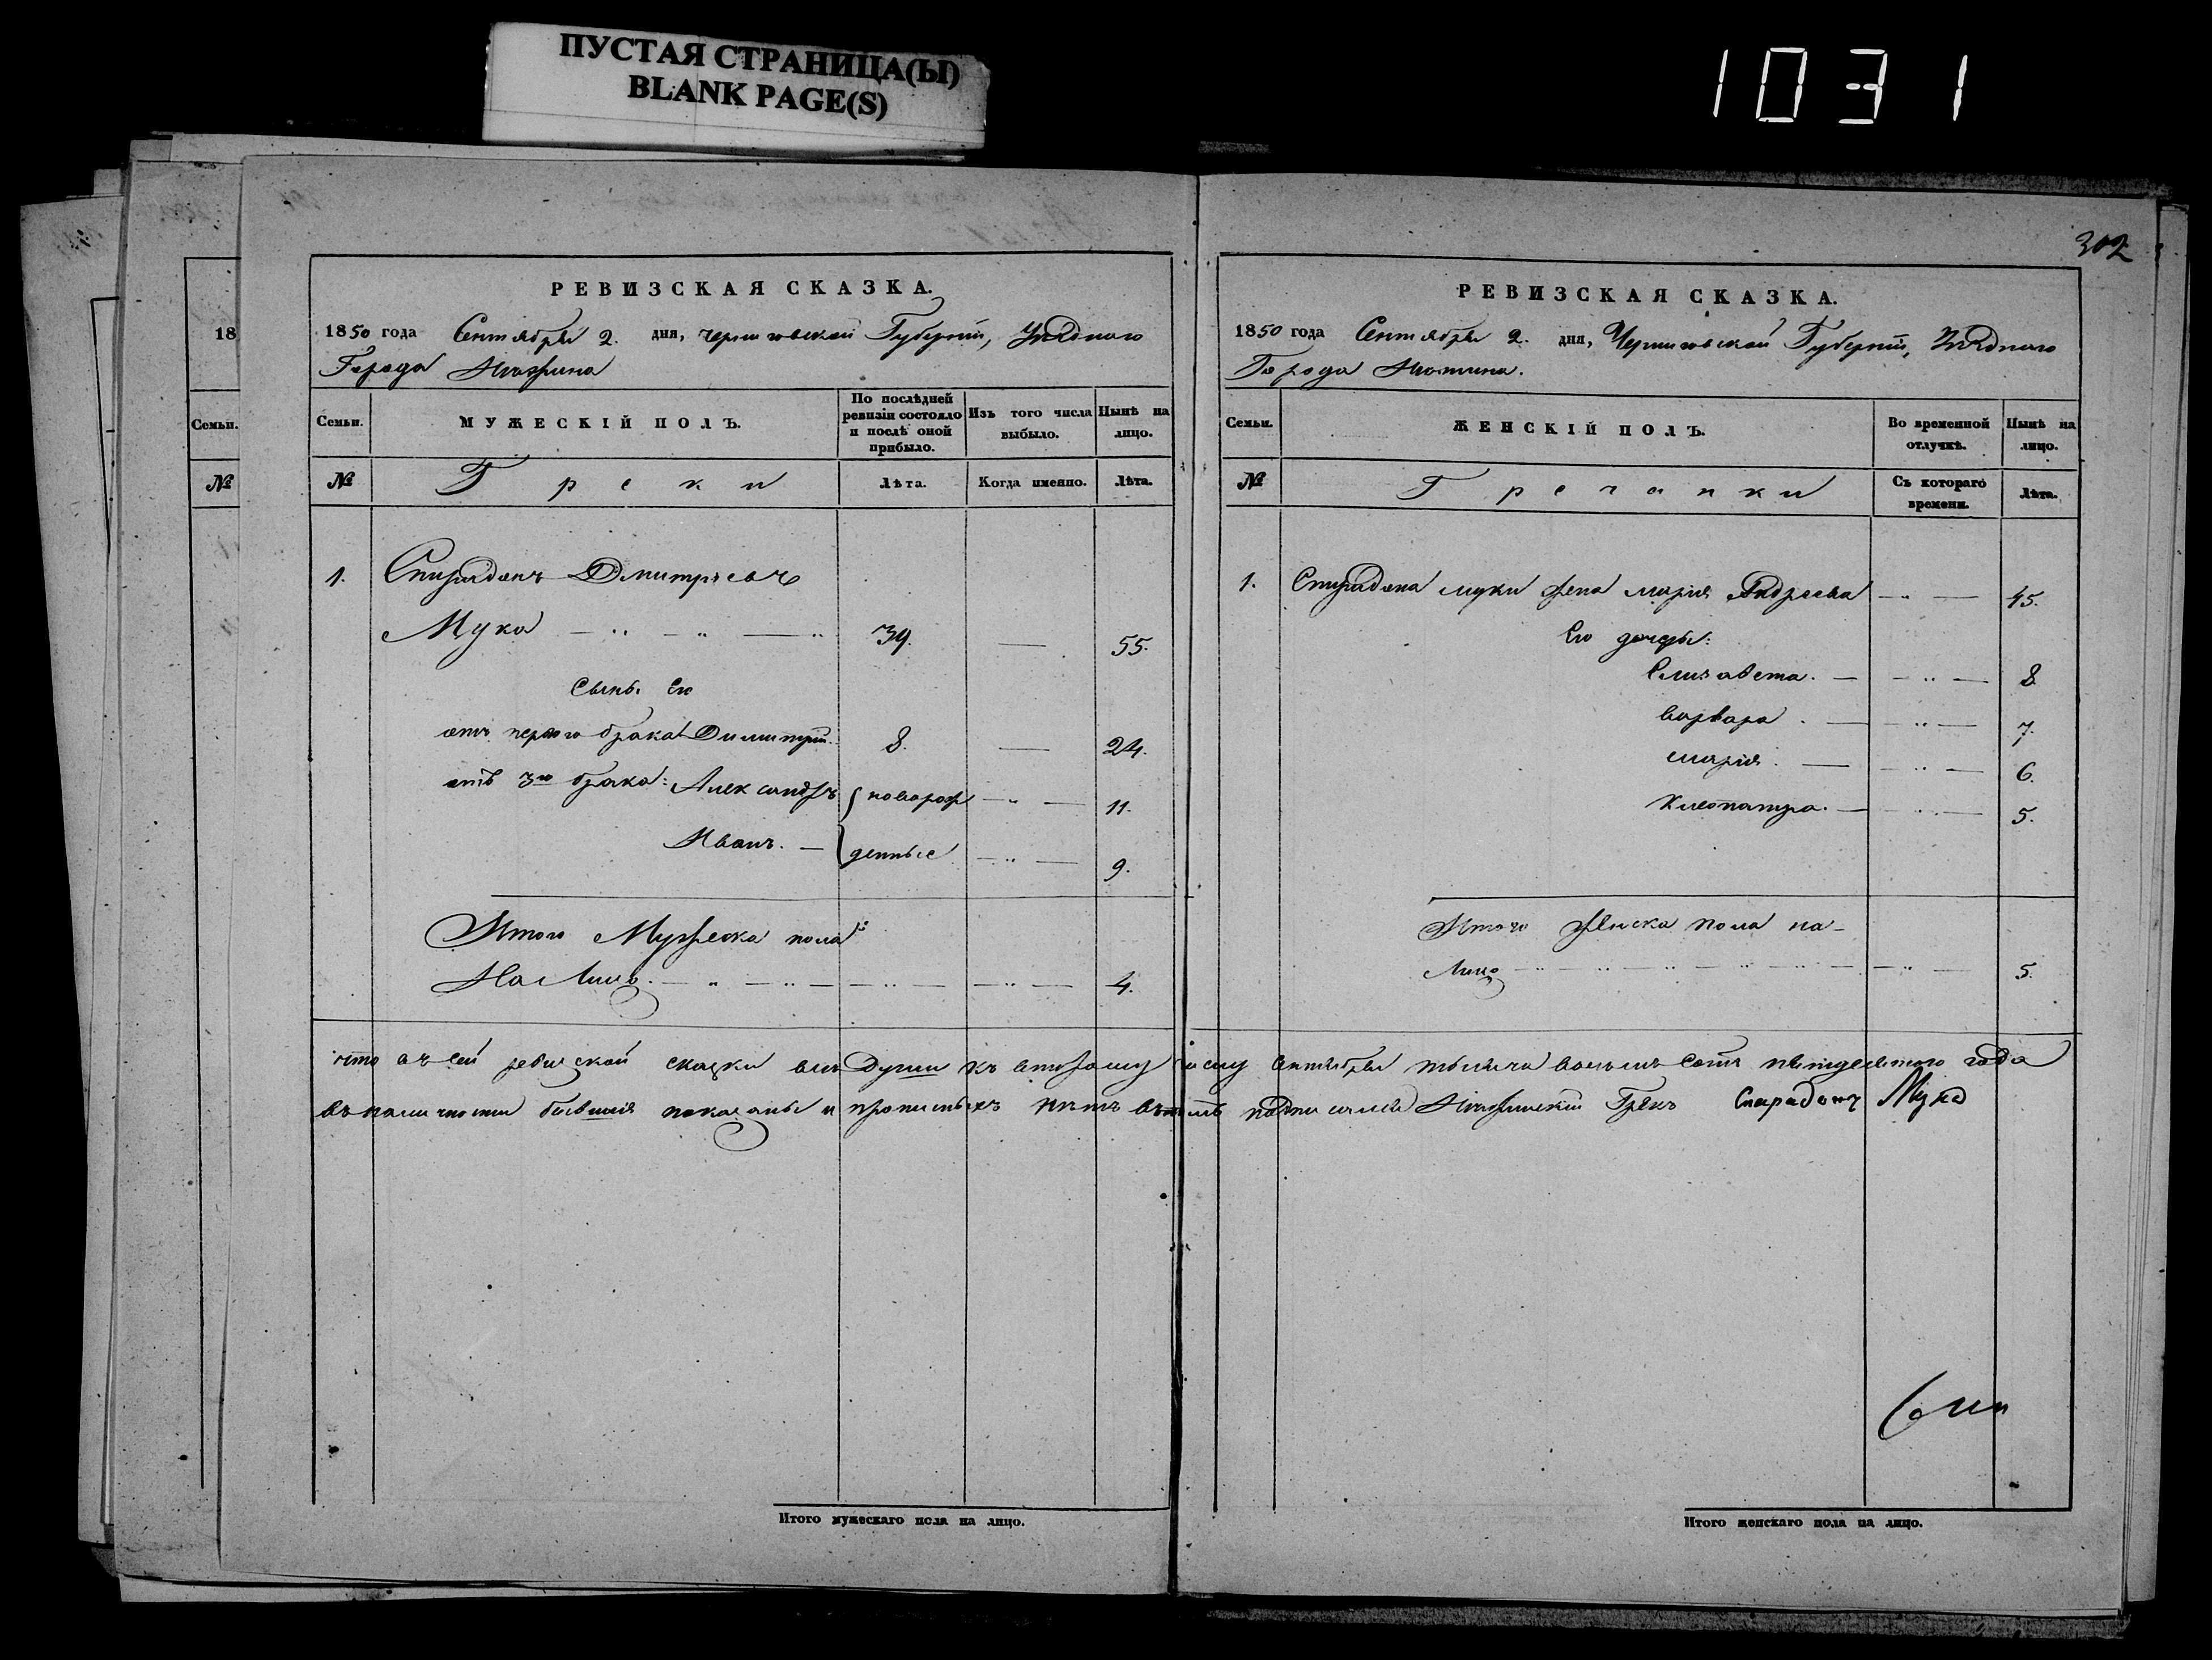 ПУСТАЯ СТРАНИЦА(Ы)
BLANK PAGE(S)
1031
302
18
Семьи.
№
РЕВИЗСКАЯ СКАЗКА.
1850 года Сентября 2. дня, Черниговской Губерніи, Уѣзднаго
Города Нѣжина
Семьи.
МУЖЕСКІЙ ПОЛЪ.
По послѣдней ревизіи состояло и послѣ оной прибыло.
Изъ того числа выбыло.
Нынѣ на лицо.
№
Греки
Лѣта.
Когда именно.
Лѣта.
1. Спиридонъ Дмитріевъ
Мука 39. — 55.
Сынъ Его
отъ первого брака Димитрій. 8. — 24.
отъ 3го брака: Александръ новорож 11.
Иванъ. — денные 9.
Итого Мужеска пола
На Лицо. 4.
РЕВИЗСКАЯ СКАЗКА.
1850 года Сентября 2. дня, Черниговской Губерніи, Уѣзднаго
Города Нѣжина.
Семьи.
ЖЕНСКІЙ ПОЛЪ.
Во временной отлучкѣ.
Нынѣ на лицо.
№
Гречанки
Съ котораго времени.
Лѣта.
1. Спиридона Муки жена Марія Андреева 45.
Его дочери:
Елизавета. — 8
Варвара. — 7.
Марія. — 6.
Клеопатра. — 5.
Итого женска пола на-
Лицо 5.
что въ сей ревизской сказки всѣ Души къ второму числу Сентября тысяча восемь сотъ пятидесятого года
въ наличности бывшія показаны и прописныхъ нѣтъ въ томъ подписался Нѣжинскій Грекъ Спиридонъ Мука
Итого мужескаго пола на лицо.
Итого женскаго пола на лицо.